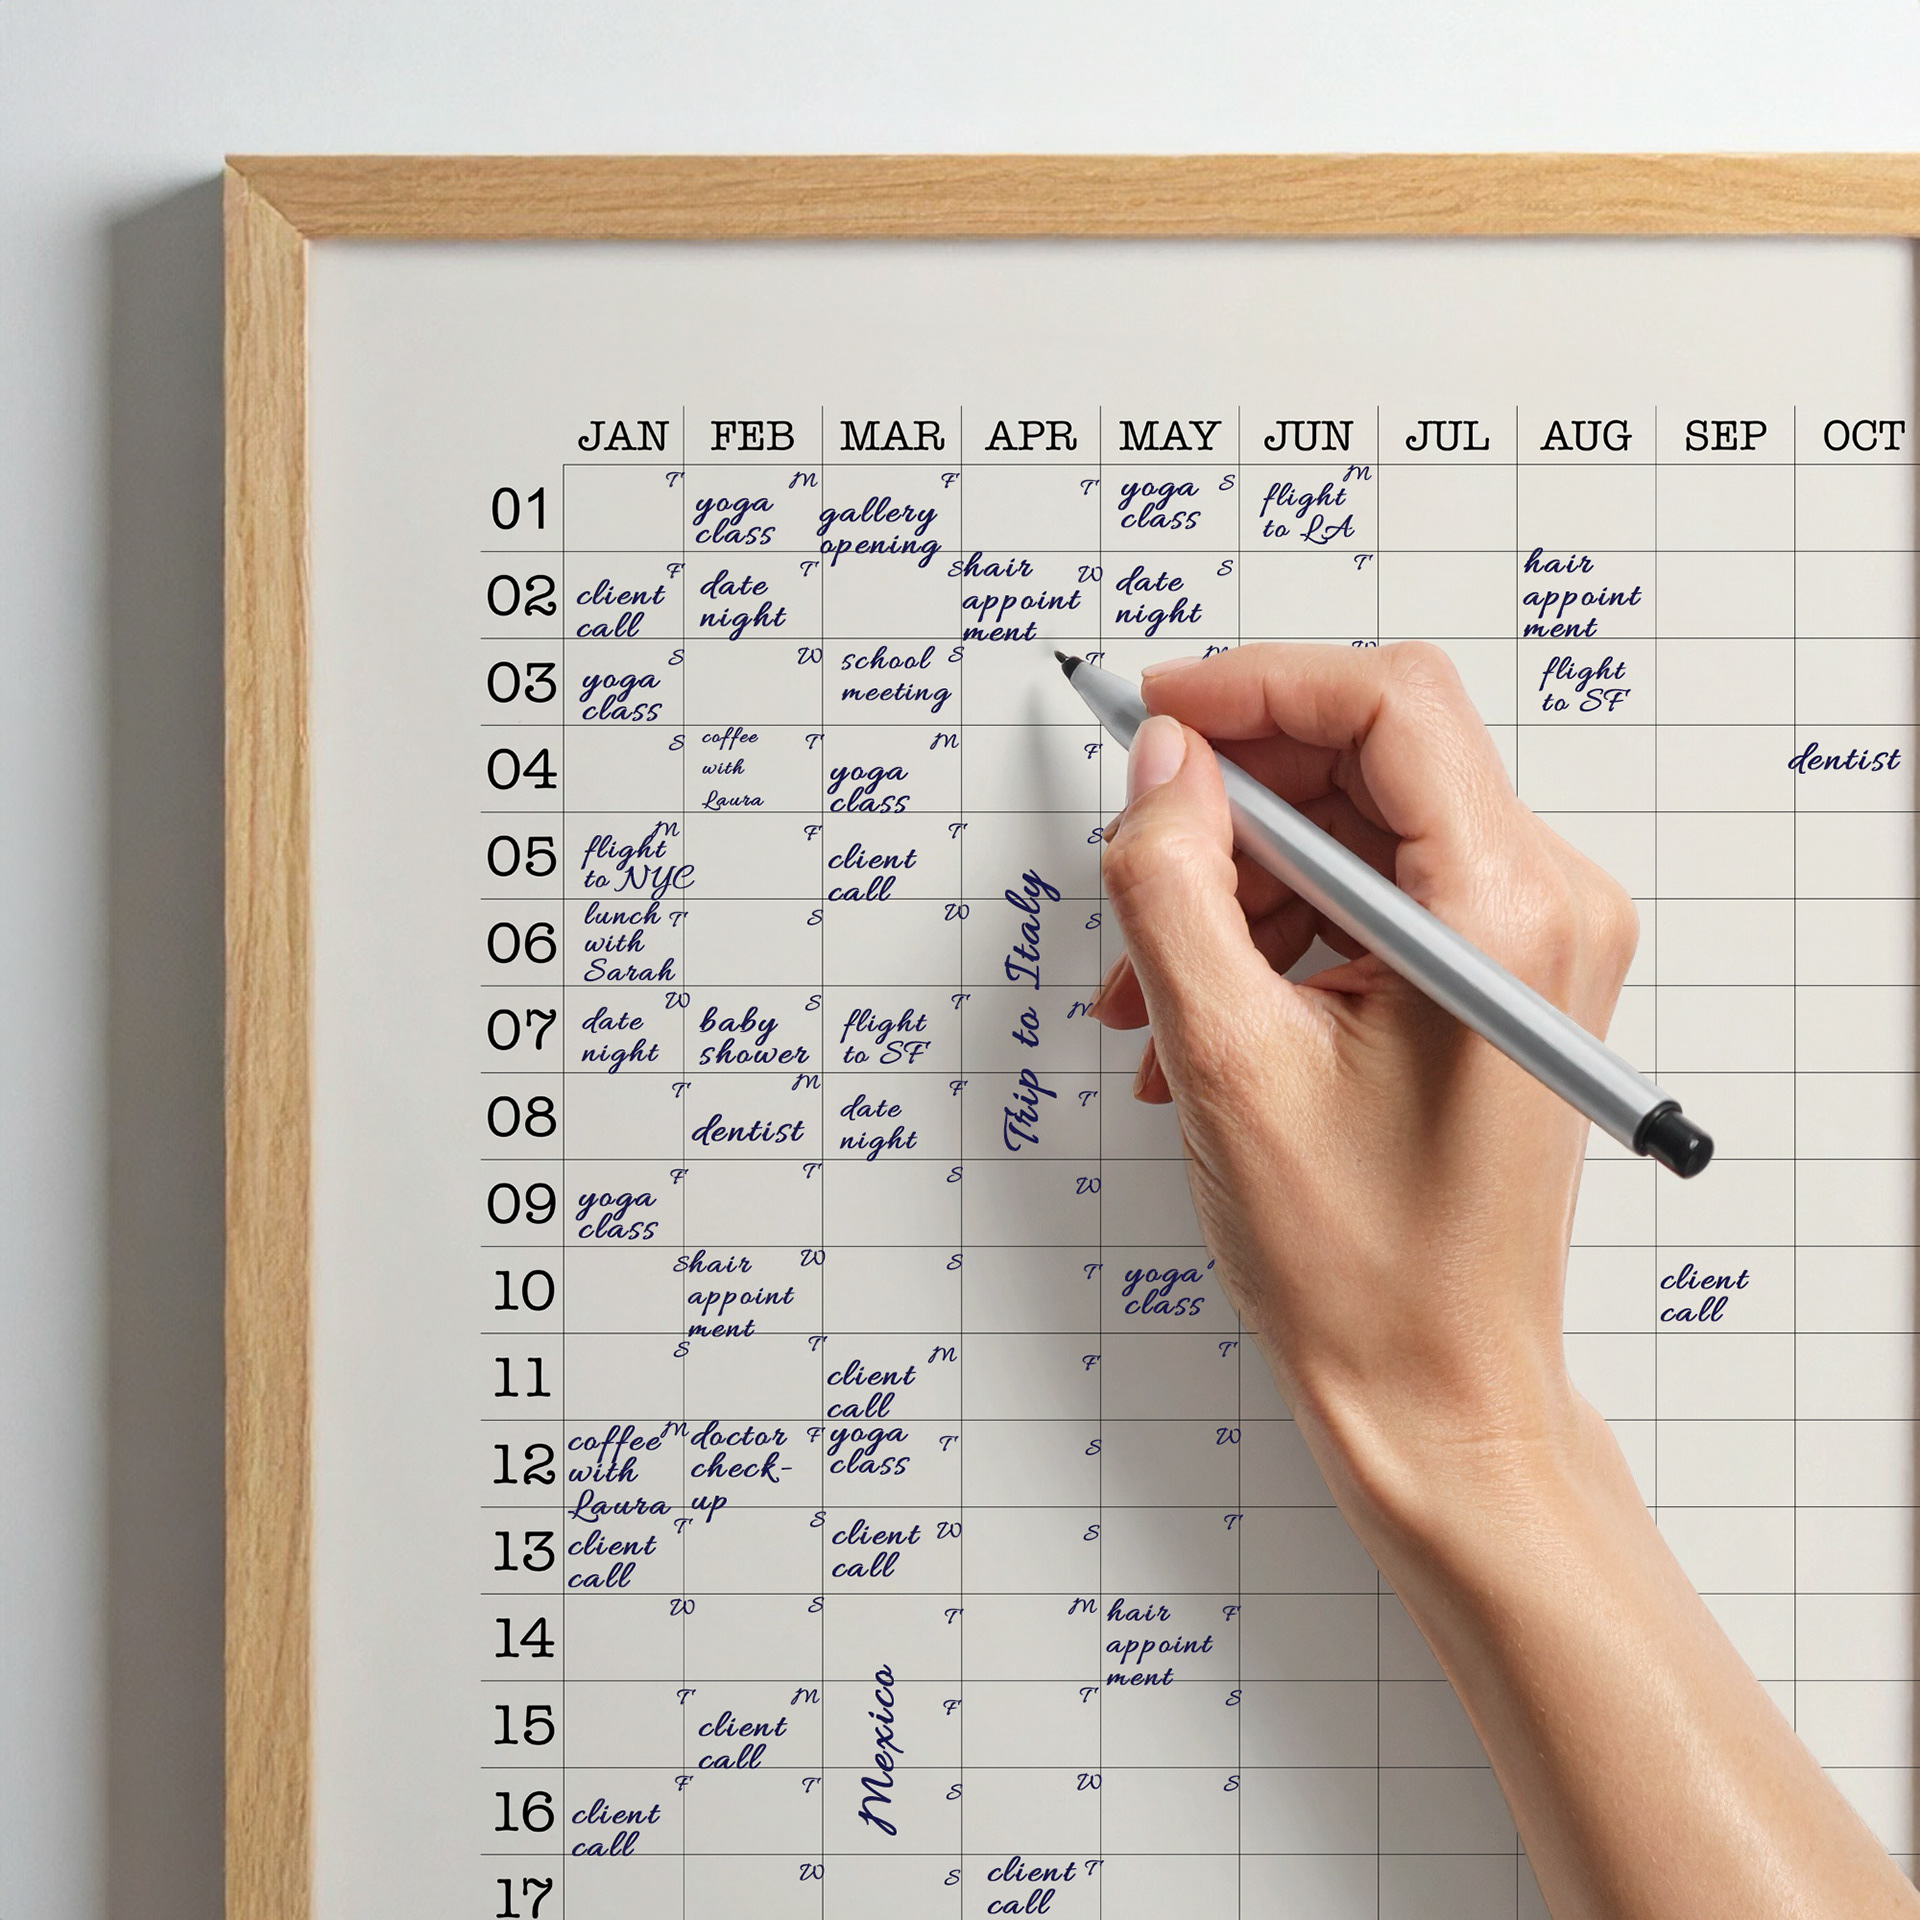 JAN FEB MAR APR MAY JUN JUL AUG SEP OCT
01
T
M
yoga
class
F
gallery
opening
T
yoga S
class
M
flight
to LA
02
F
client
call
T
date
night
S
hair W
appoint
ment
S
date
night
T
hair
appoint
ment
03
S
yoga
class
W
school S
meeting
T
flight
to SF
04
S
coffee T
with
Laura
M
yoga
class
F
dentist
05
M
flight
to NYC
F
T
client
call
S
06
lunch T
with
Sarah
S
W
S
Trip to Italy
07
W
date
night
S
baby
shower
T
flight
to SF
M
08
T
M
dentist
F
date
night
T
09
F
yoga
class
T
S
W
10
S
hair W
appoint
ment
S
T
yoga
class
client
call
11
S
T
M
client
call
F
T
12
coffee M
with
Laura
doctor F
check-
up
yoga T
class
S
W
13
T
client
call
S
client W
call
S
T
14
W
S
T
M
hair F
appoint
ment
15
T
M
client
call
F
T
S
Mexico
16
F
client
call
T
S
W
S
17
W
S
client T
call